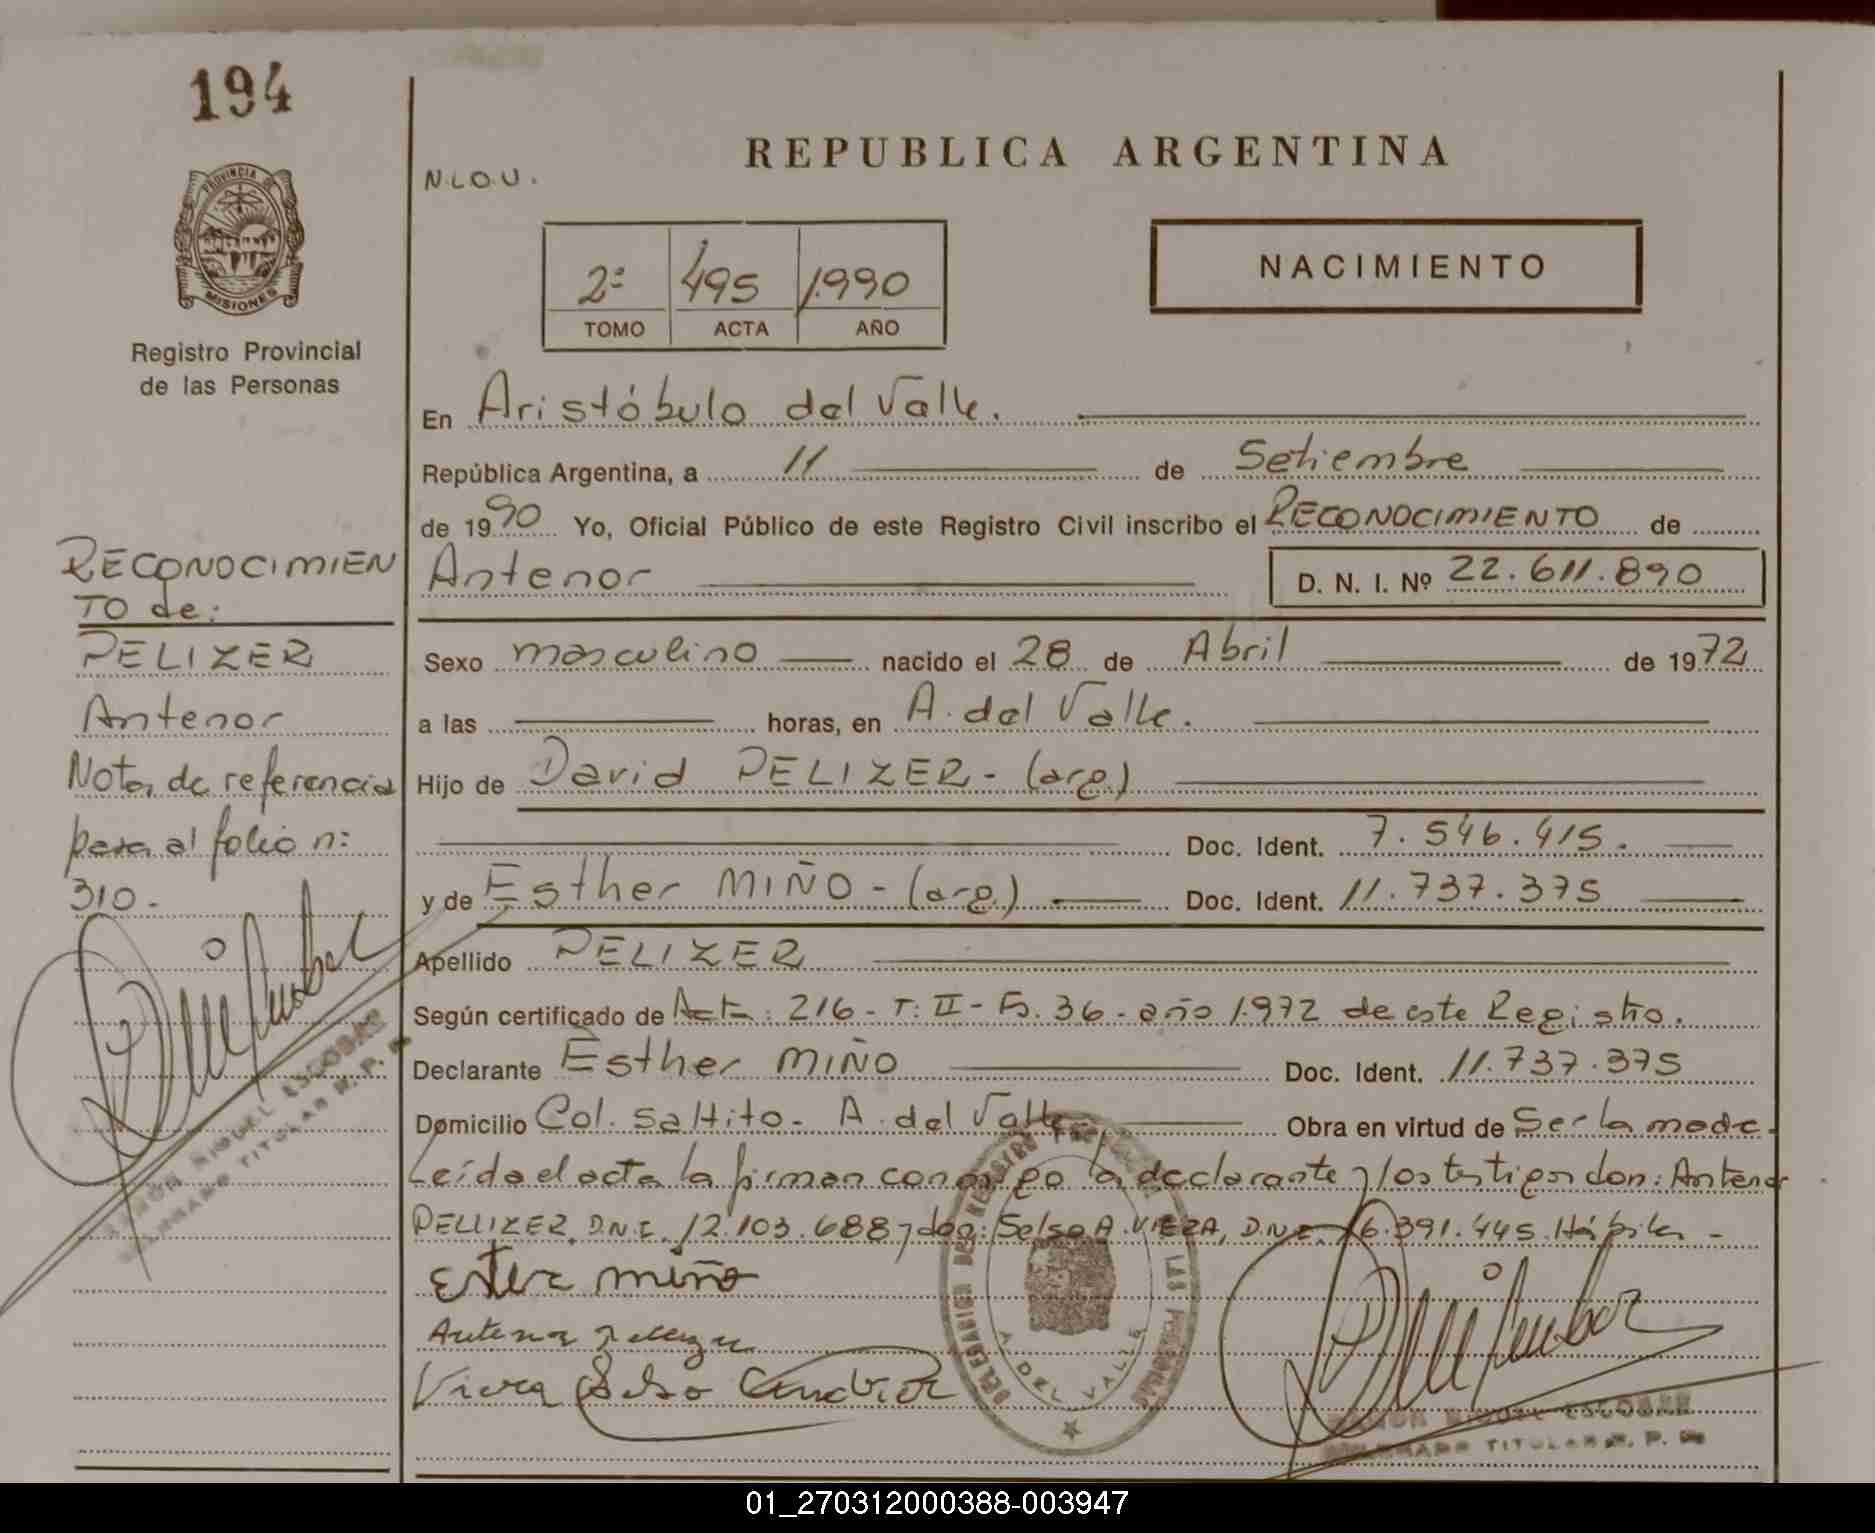 194
PROVINCIA DE
MISIONES
Registro Provincial
de las Personas
RECONOCIMIEN
TO de:
PELIZER
Antenor
Nota de referencia
pasa al folio n:
310.-
RAMÓN MIGUEL ESCOBAR
DELEGADO TITULAR R. P. P.
N.L.O.U.
REPUBLICA ARGENTINA
2º 495 1.990
TOMO ACTA AÑO
NACIMIENTO
En Aristóbulo del Valle.
República Argentina, a 11 de Setiembre
de 1990 Yo, Oficial Público de este Registro Civil inscribo el RECONOCIMIENTO de
Antenor D. N. I. Nº 22.611.890
Sexo masculino nacido el 28 de Abril de 1972
a las horas, en A. del Valle.
Hijo de David PELIZER - (arg.)
Doc. Ident. 7.546.415.
y de Esther MIÑO - (arg.) Doc. Ident. 11.737.375
Apellido PELIZER
Según certificado de Acta: 216 - T: II - Fo. 36 - año 1.972 de este Registro.
Declarante Esther MIÑO Doc. Ident. 11.737.375
Domicilio Col. Saltito - A. del Valle Obra en virtud de Ser la madre.
Leída el acta la firman conmigo la declarante y los testigos don: Antenor
PELLIZER, D.N.I. 12.103.688 y don: Selso A. VIERA, D.N.I. 16.391.445. Hábiles -
Ester miño
Antenor Pellizer
Viera Selso
DELEGACION DEL REGISTRO PROVINCIAL DE LAS PERSONAS
A. DEL VALLE
RAMÓN MIGUEL ESCOBAR
DELEGADO TITULAR R. P. P.
01_270312000388-003947